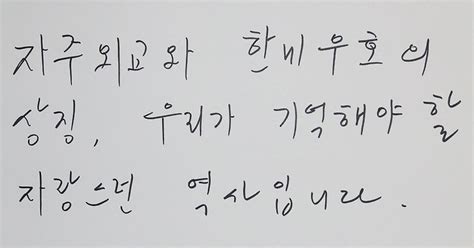 자주외교와 한미우호의
상징, 우리가 기억해야 할
자랑스런 역사입니다.